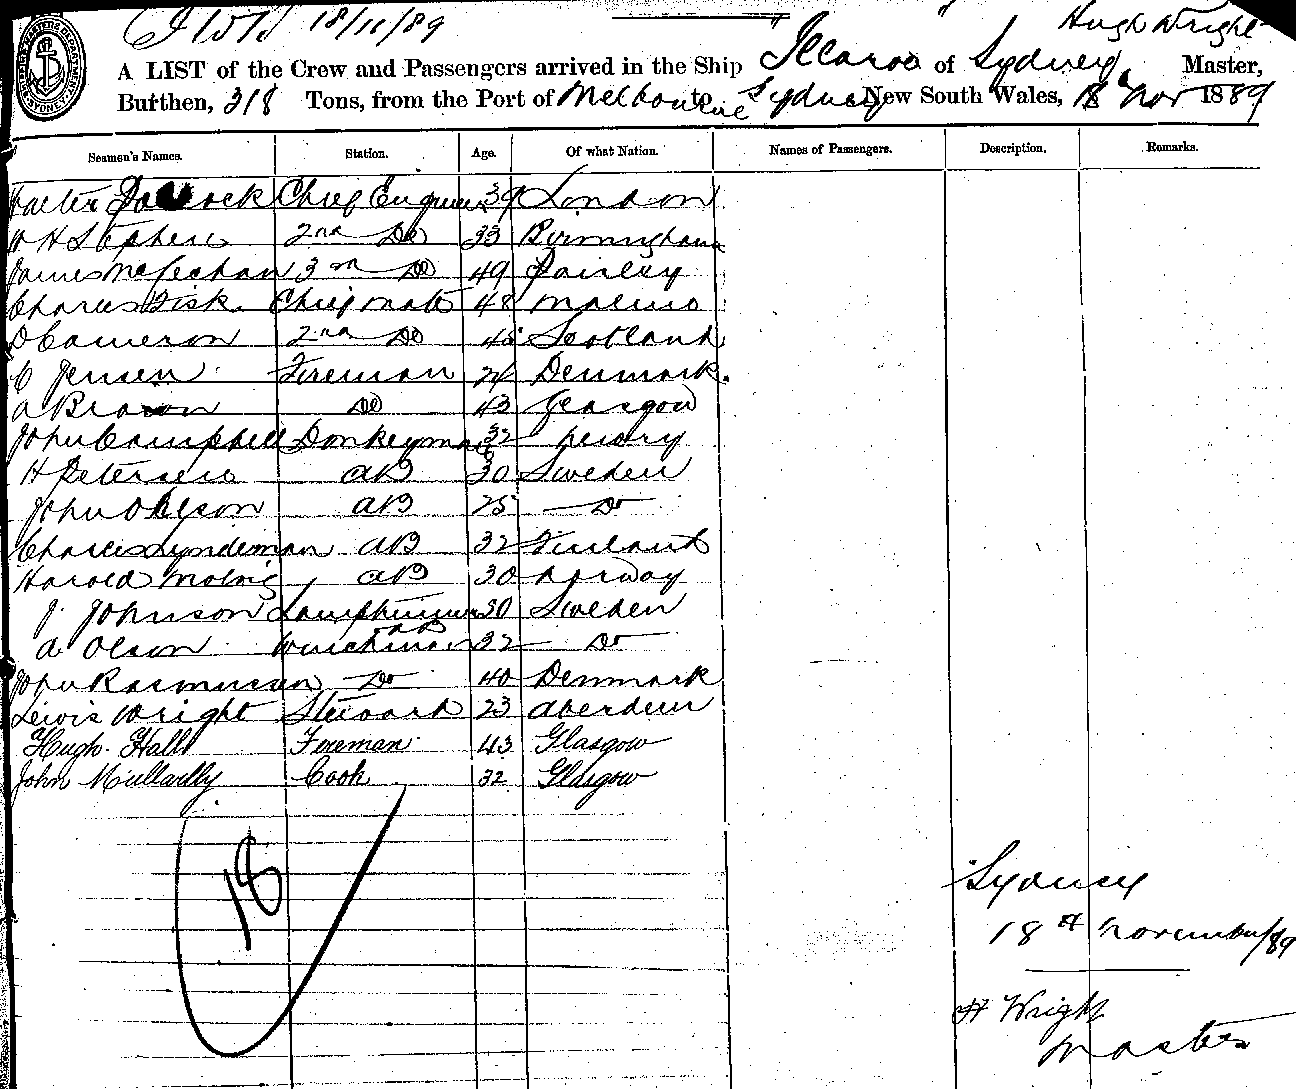 18/11/89
Hugh Wright
A LIST of the Crew and Passengers arrived in the Ship "Illaroo" of Sydney, Master,
Burthen, 318 Tons, from the Port of Melbourne to Sydney New South Wales, 18 Nov 1889
Seamen's Names. Station. Age. Of what Nation. Names of Passengers. Description. Remarks.
Walter Chief Engineer 39 London
W H Stephens 2nd Do 33 Birmingham
James McGechan 3rd Do 49 Paisley
Charles Fisk. Chief mate 48
D Cameron 2nd Do Scotland
C Jensen Fireman 24 Denmark.
A Brown Do 43 Glasgow
John Campbell Donkeyman 32
H Petersen AB 30 Sweden
John Ohlson AB 25 Do
Charles Lyndeman AB 32 Finland
Harold AB 30 Norway
J. Johnson Lamptrimmer 30 Sweden
A Olson Winchman AB 32 Do
John Rasmussen Do 40 Denmark
Lewis Wright Steward 23 Aberdeen
Hugh Hall Fireman 43 Glasgow
John Mullarlly Cook 32 Glasgow
18
Sydney
18th November/89
H Wright
Master